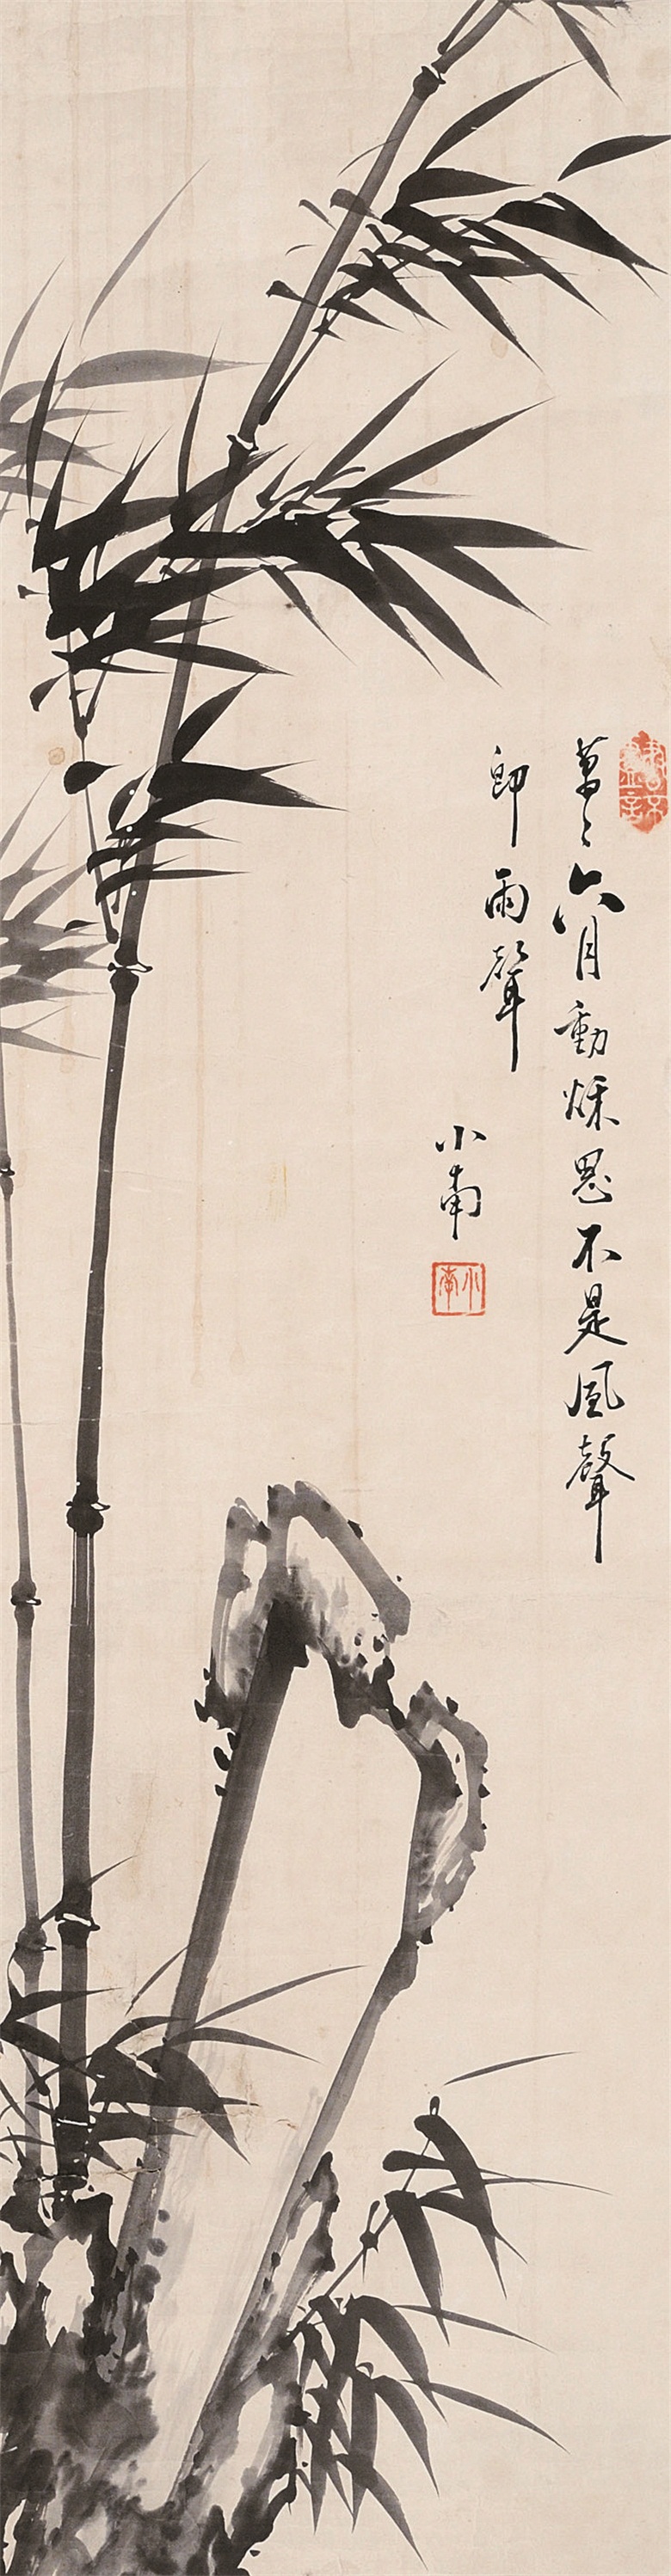 蕭〻六月動秌思不是風聲
即雨聲
小南
小南